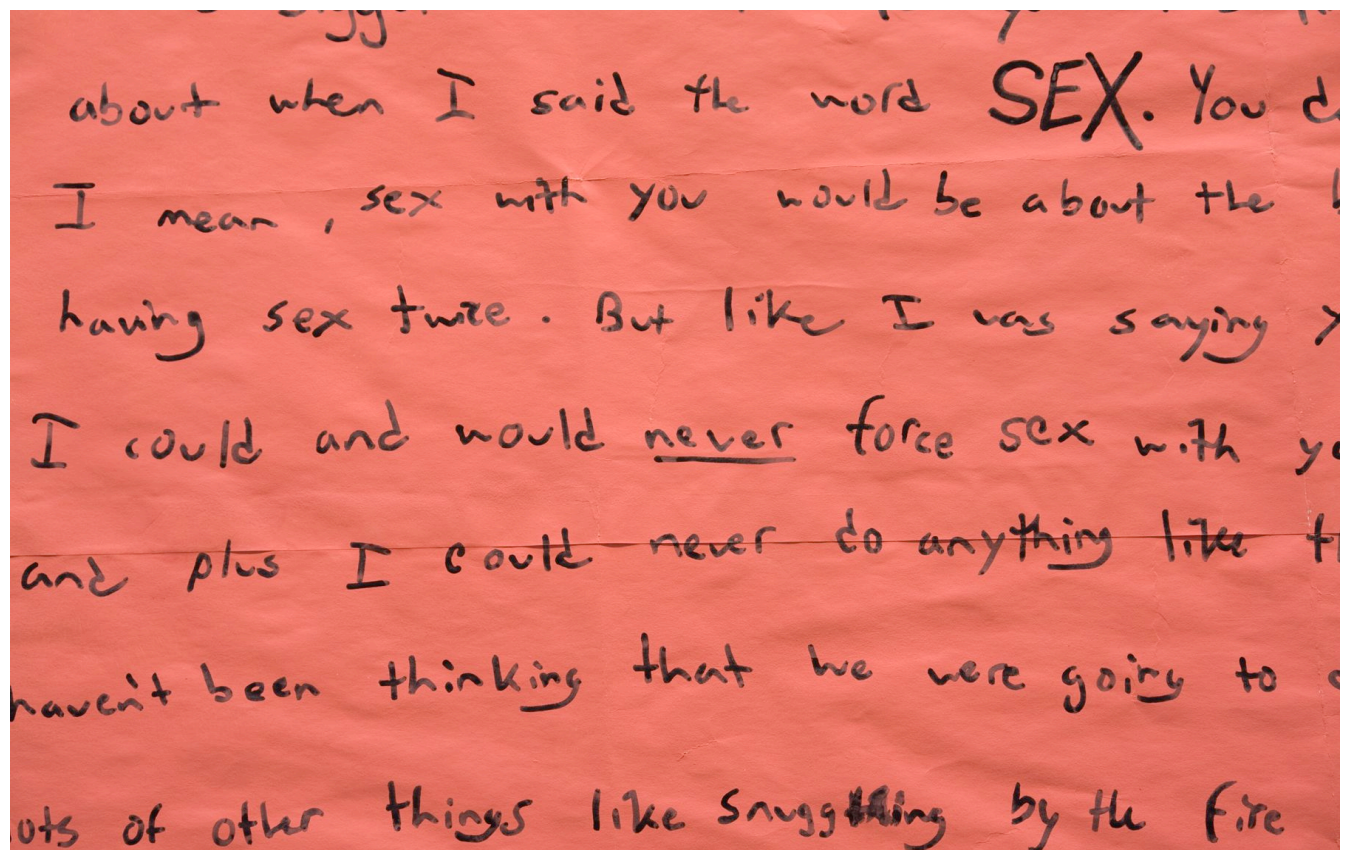 about when I said the word SEX. You
I mean, sex with you would be about the
having sex twice. But like I was saying
I could and would never force sex with
and plus I could never do anything like
haven't been thinking that we were going to
of other things like by the fire